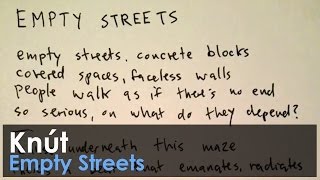 EMPTY STREETS
empty streets, concrete blocks
covered spaces, faceless walls
people walk as if there's no end
so serious, on what do they depend?
underneath this maze
that emanates, radiates
Knút
Empty Streets